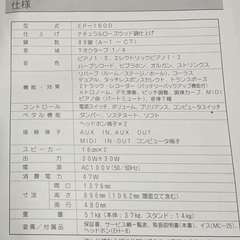 仕様
型式 EP-1600
仕上げ ナチュラルローズウッド調仕上げ
鍵盤 88鍵(A-1~C7)
音律 ♭オクターブ1/4
音色 ピアノ1・2、エレクトリックピアノ1・2
ハープシコード、ビブラホン、オルガン、ストリングス
機能/効果 リバーブ(ルーム/ステージ/ホール)、コーラス
デュアル、タッチレスポンスセレクト、トランスポーズ
2トラックレコーダー(バッテリーバックアップ機能付)
メトロノーム、デモ演奏、ピッチ調整、調律カーブ、MIDI
コントロール 電源スイッチ、ボリューム、ブリリアンス、コンピュータスイッチ
ペダル機能 ダンパー、ソステヌート、ソフト
接続端子 ヘッドホン端子×2
AUX IN、AUX OUT
MIDI IN/OUT コンピュータ端子
スピーカー 16cm×2
出力 30W+30W
電源 AC100V(50/60Hz)
消費電力 47W
寸法 間口 1376mm
高さ 896mm(1062 譜面立て含む)
奥行 480mm
重量 51kg(本体:37kg、スタンド:14kg)
装備/付属品 保証書、サービス網一覧表、取扱説明書(本書)、イス(MC-25)、
ヘッドホン(EH-8)